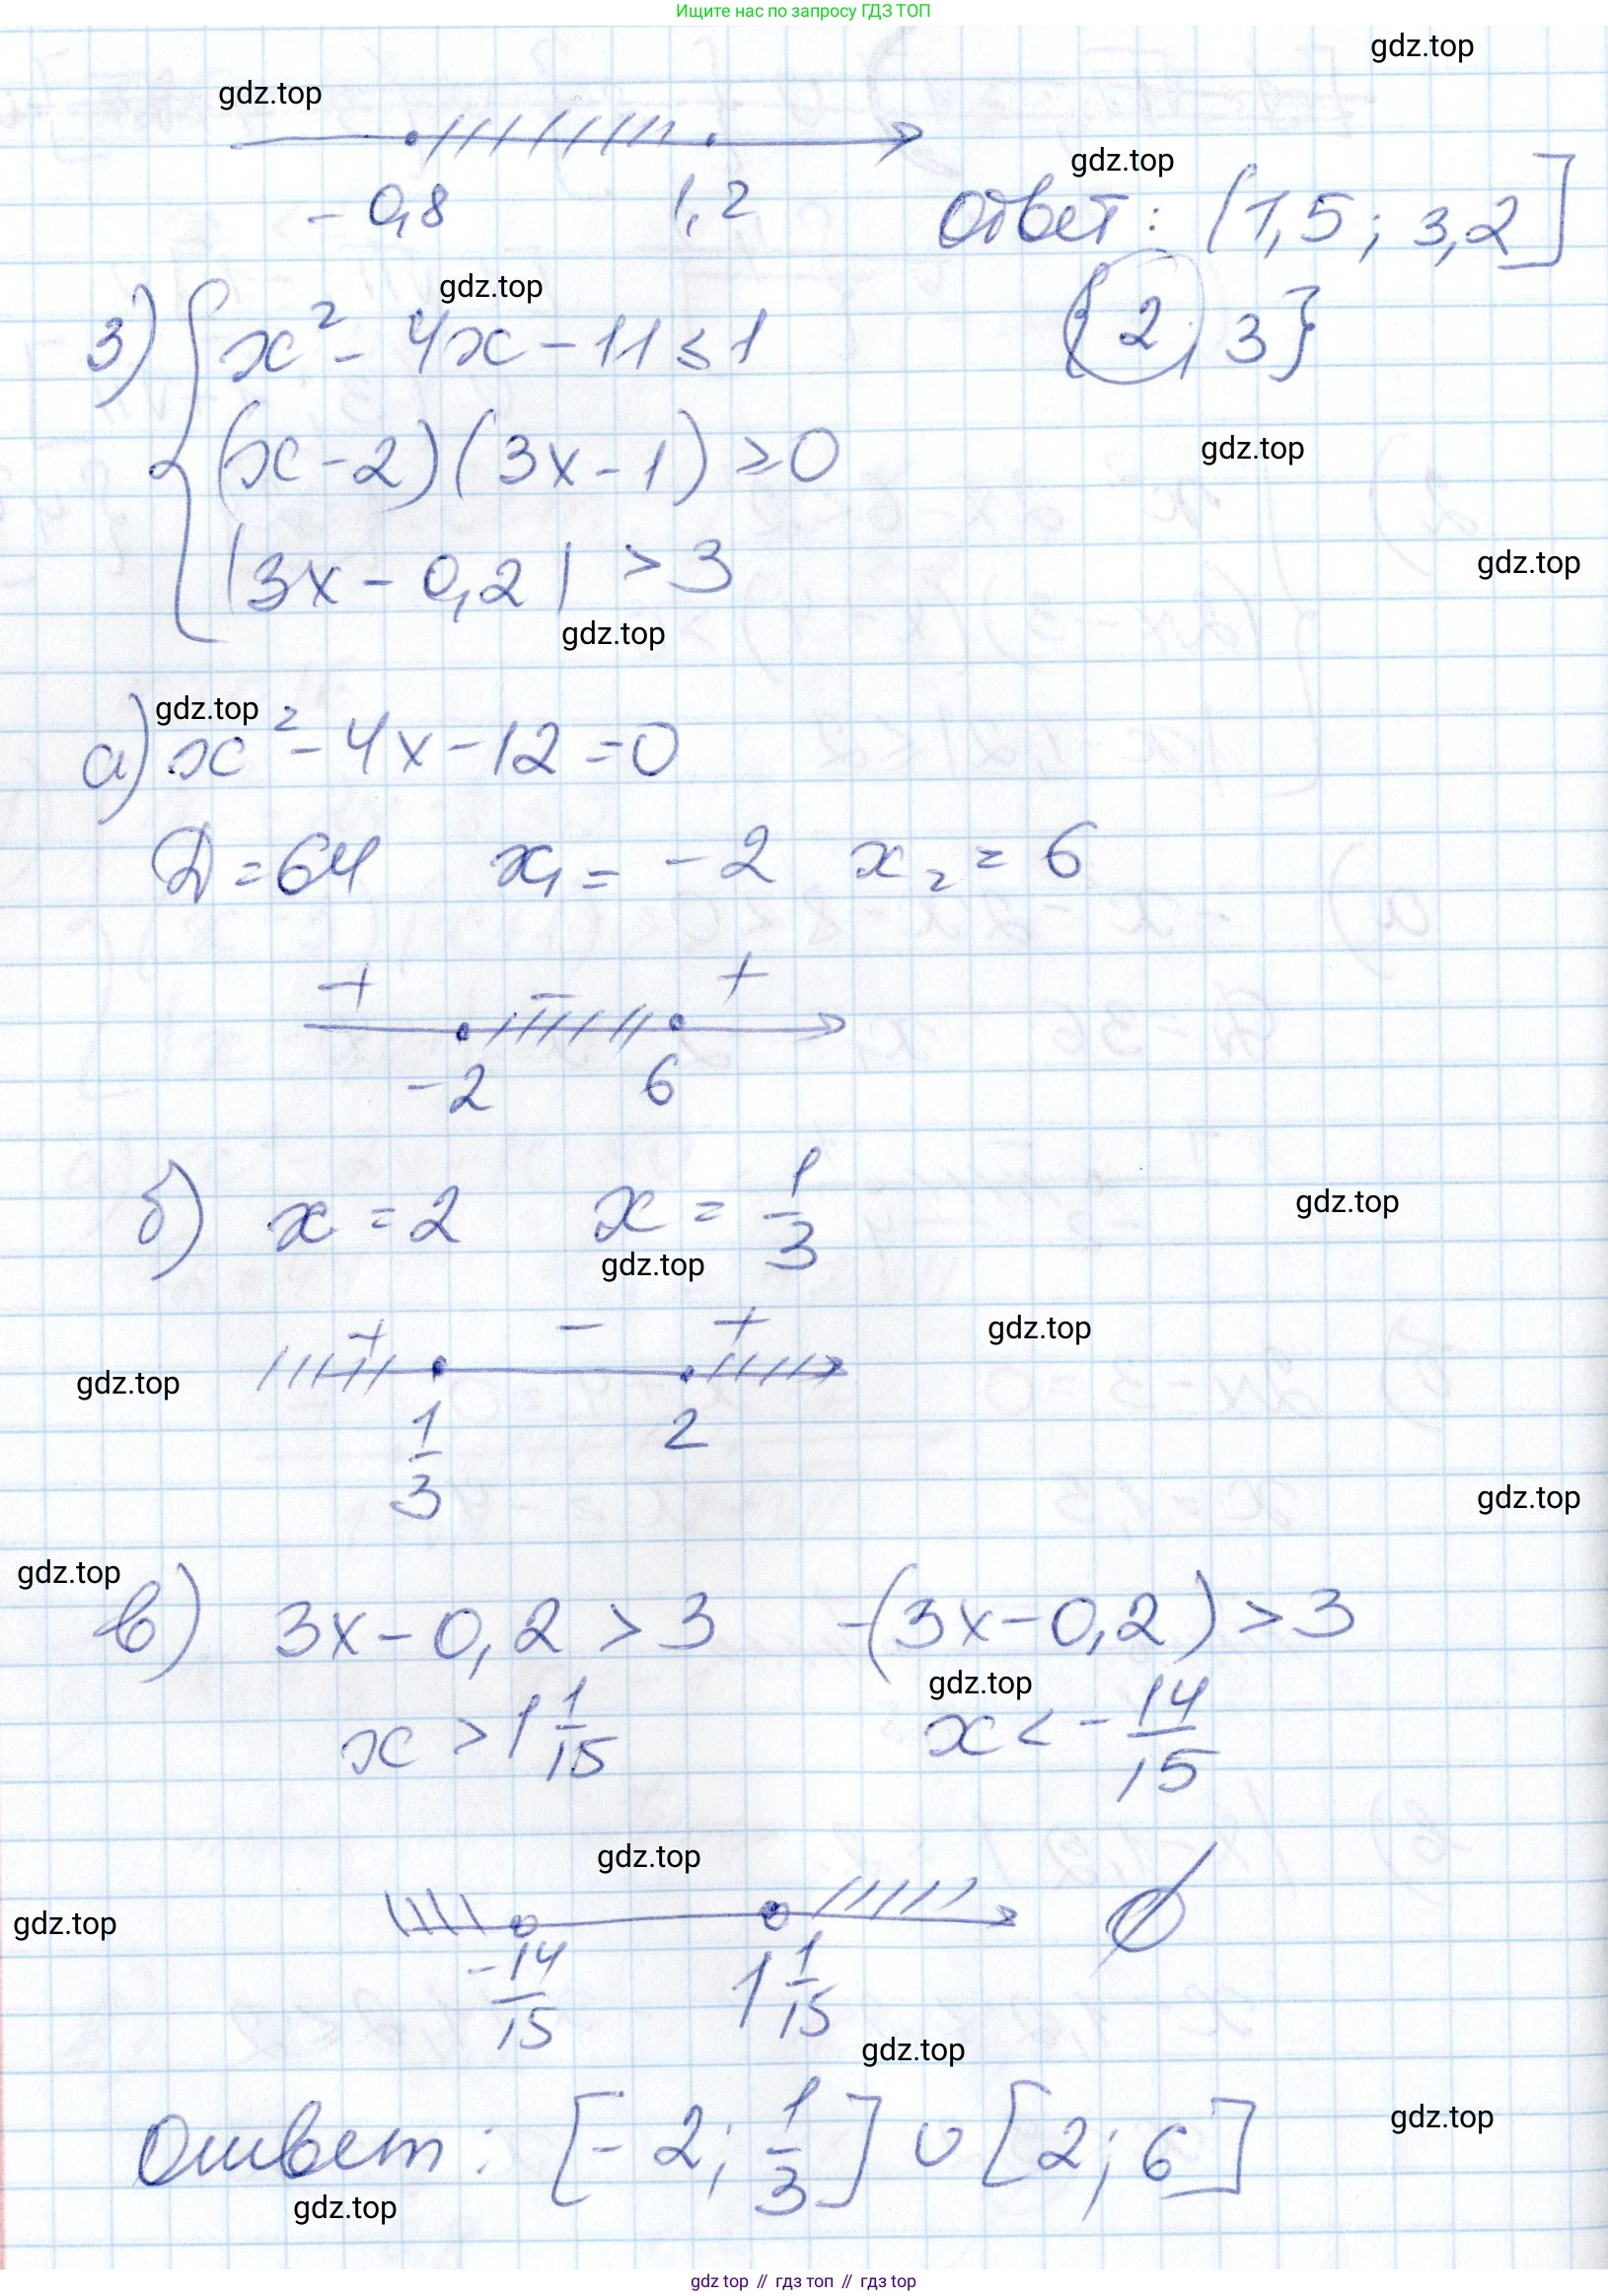 Ищите нас по запросу ГДЗ ТОП
gdz.top
gdz.top
gdz.top
-0,8 1,2
Ответ: (1,5; 3,2]
{2; 3}
gdz.top
3) { x² - 4x - 11 ≤ 1
(x - 2)(3x - 1) ≥ 0
gdz.top
|3x - 0,2| > 3
gdz.top
gdz.top
gdz.top
а) x² - 4x - 12 = 0
D = 64 x₁ = -2 x₂ = 6
+ - +
-2 6
б) x = 2 x = 1/3
gdz.top
gdz.top
+ - +
gdz.top
gdz.top
1/3 2
gdz.top
gdz.top
в) 3x - 0,2 > 3 -(3x - 0,2) > 3
gdz.top
x > 1 1/15 x < - 14/15
gdz.top
gdz.top
∅
-14/15 1 1/15
gdz.top
Ответ: [-2; 1/3] ∪ [2; 6]
gdz.top
gdz.top
gdz top // гдз топ // gdz top